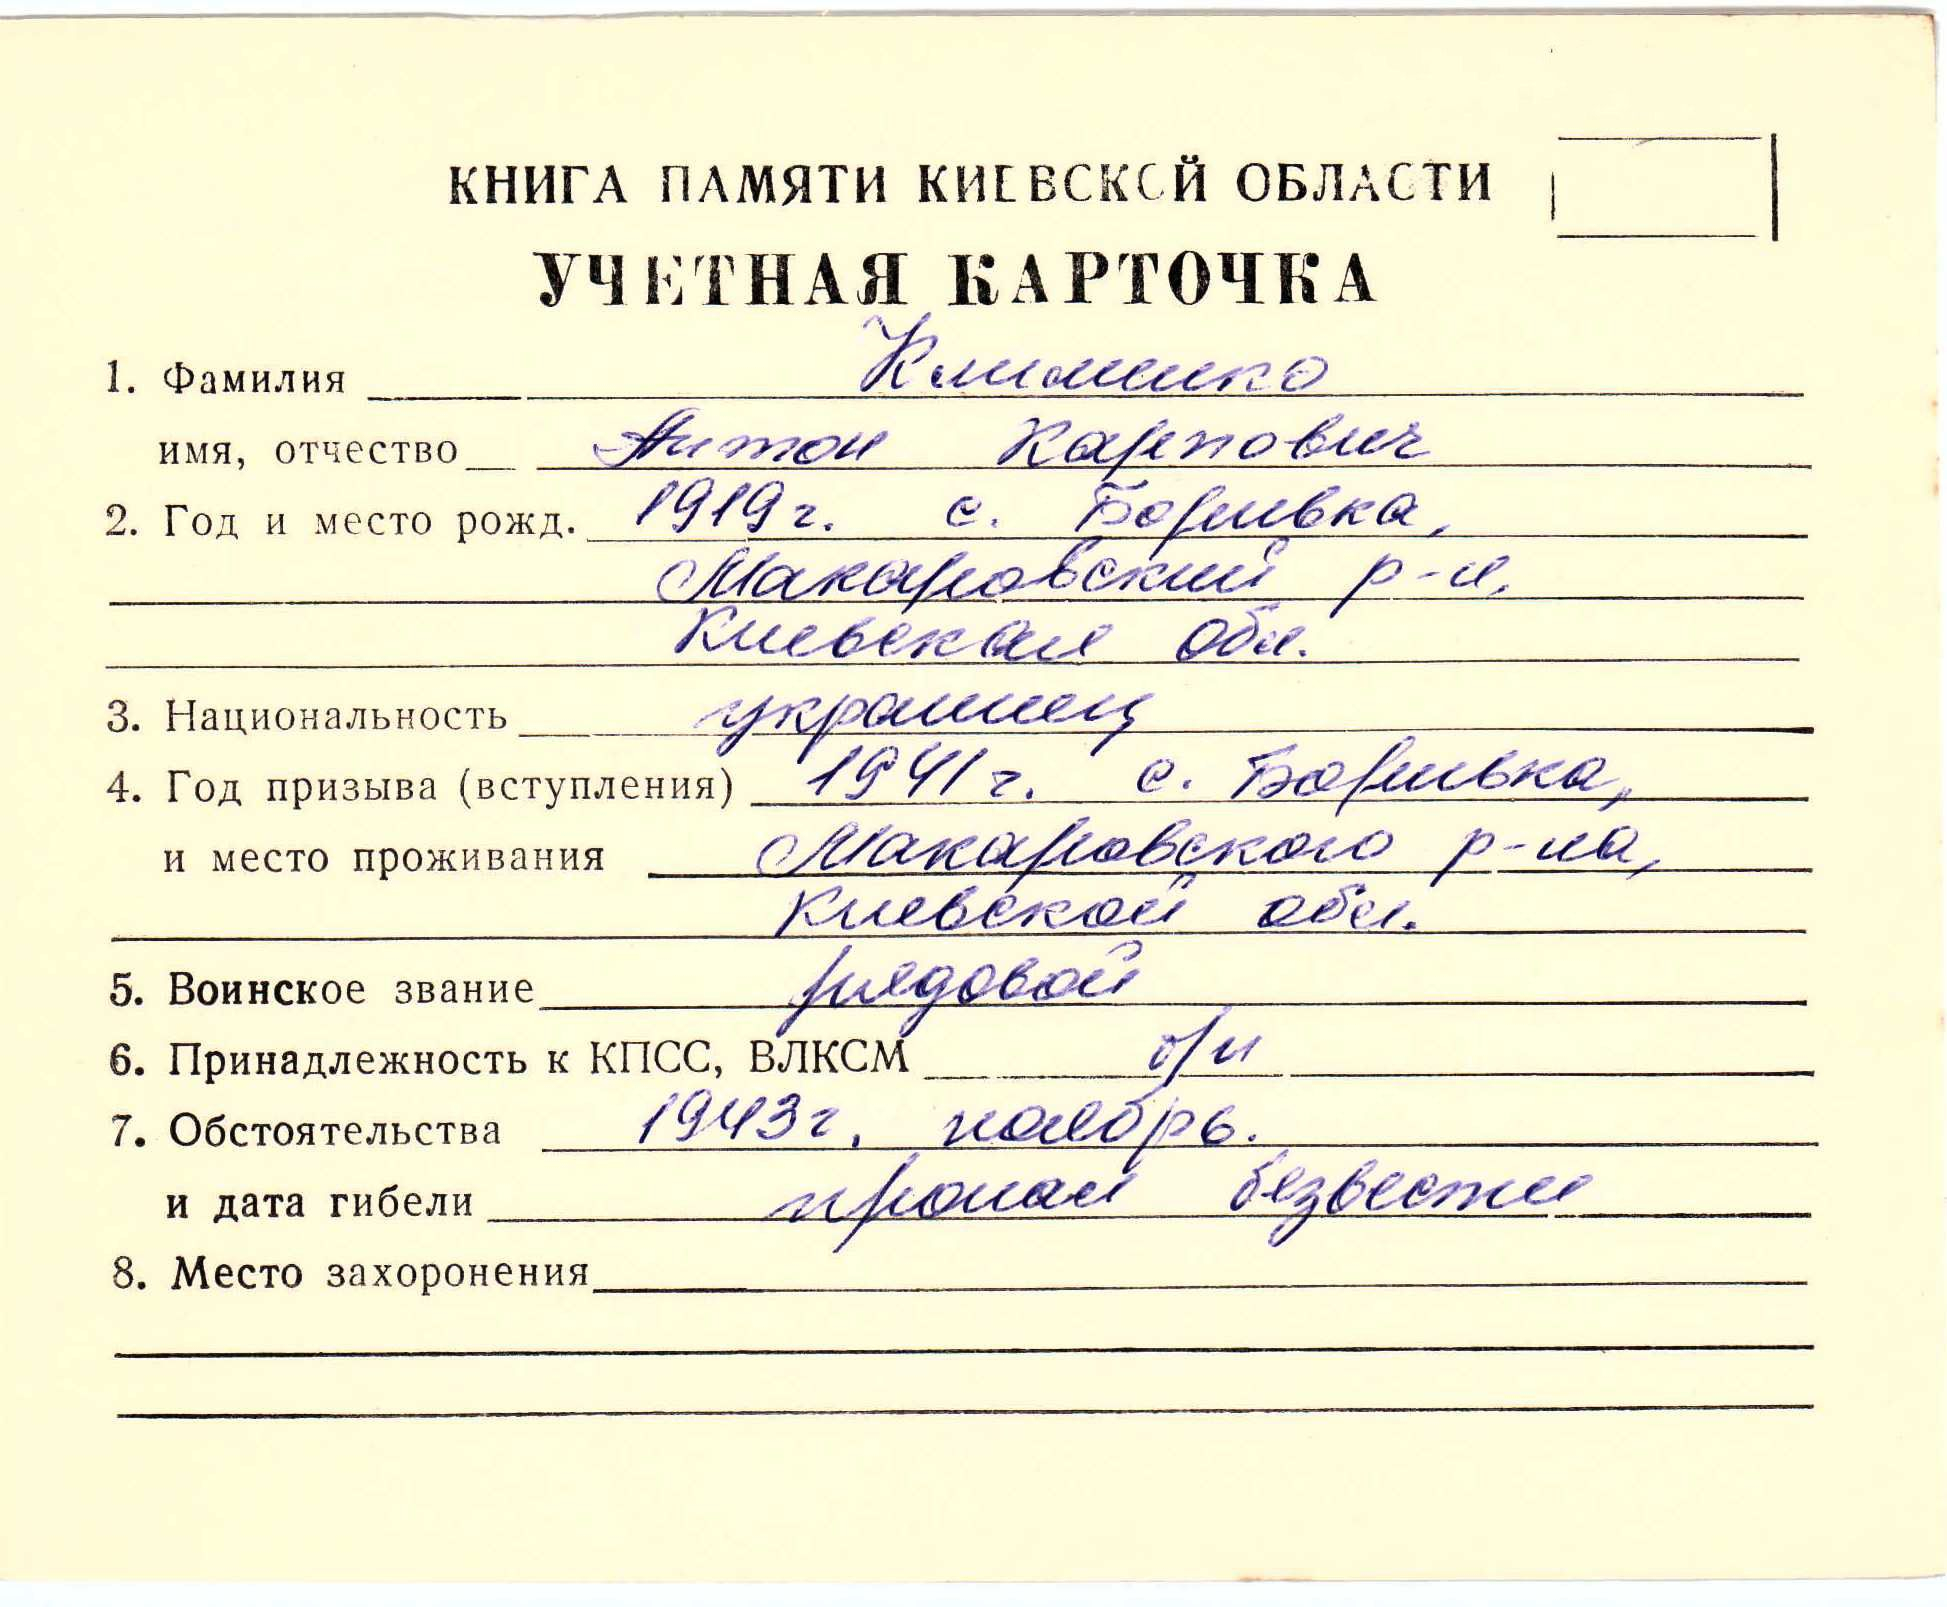 КНИГА ПАМЯТИ КИЕВСКОЙ ОБЛАСТИ
УЧЕТНАЯ КАРТОЧКА
1. Фамилия Клименко
имя, отчество Антон Карпович
2. Год и место рожд. 1919 г. с. Боривка,
Макаровский р-н,
Киевская обл.
3. Национальность украинец
4. Год призыва (вступления) 1941 г. с. Боривка,
и место проживания Макаровского р-на,
Киевской обл.
5. Воинское звание рядовой
6. Принадлежность к КПСС, ВЛКСМ б/п
7. Обстоятельства 1943 г. ноябрь.
и дата гибели пропал безвести
8. Место захоронения